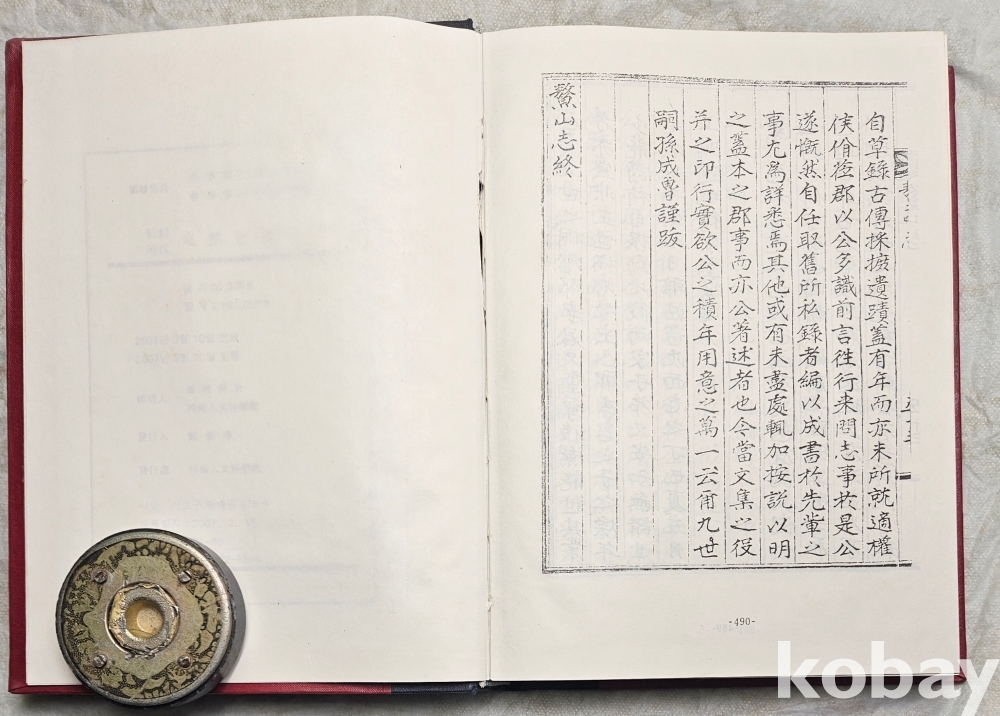 自草錄古傳採摭遺蹟蓋有年而亦未所就適權
侯佾莅郡以公多識前言徃行来問志事於是公
遂慨然自任取舊所私錄者編以成書於先輩之
事尤為詳悉焉其他或有未盡處輒加按說以明
之蓋本之郡事而亦公著述者也今當文集之役
并之印行實欲公之積年用意之萬一云甬九世
嗣孫成曺謹跋
鰲山志終
-490-
kobay